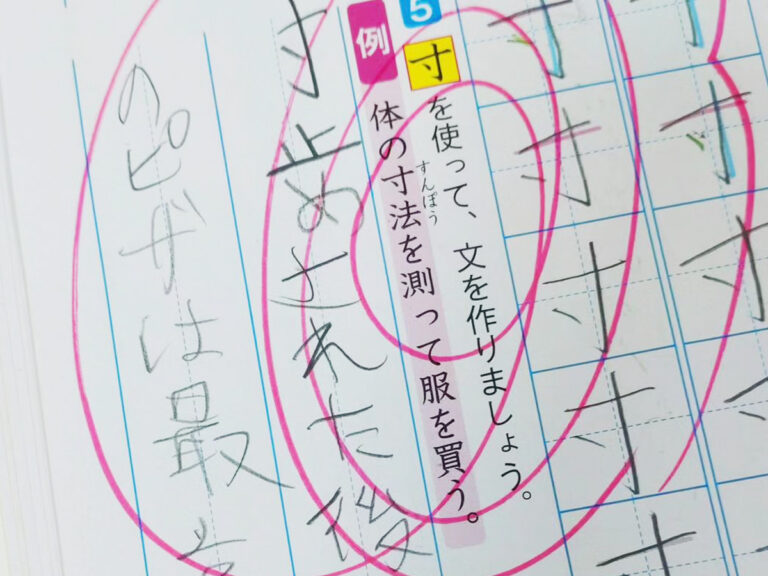 寸
寸
寸
寸
寸
寸
寸
5
寸を使って、文を作りましょう。
すんぽう
例 体の寸法を測って服を買う。
寸止めされた後
のピザは最